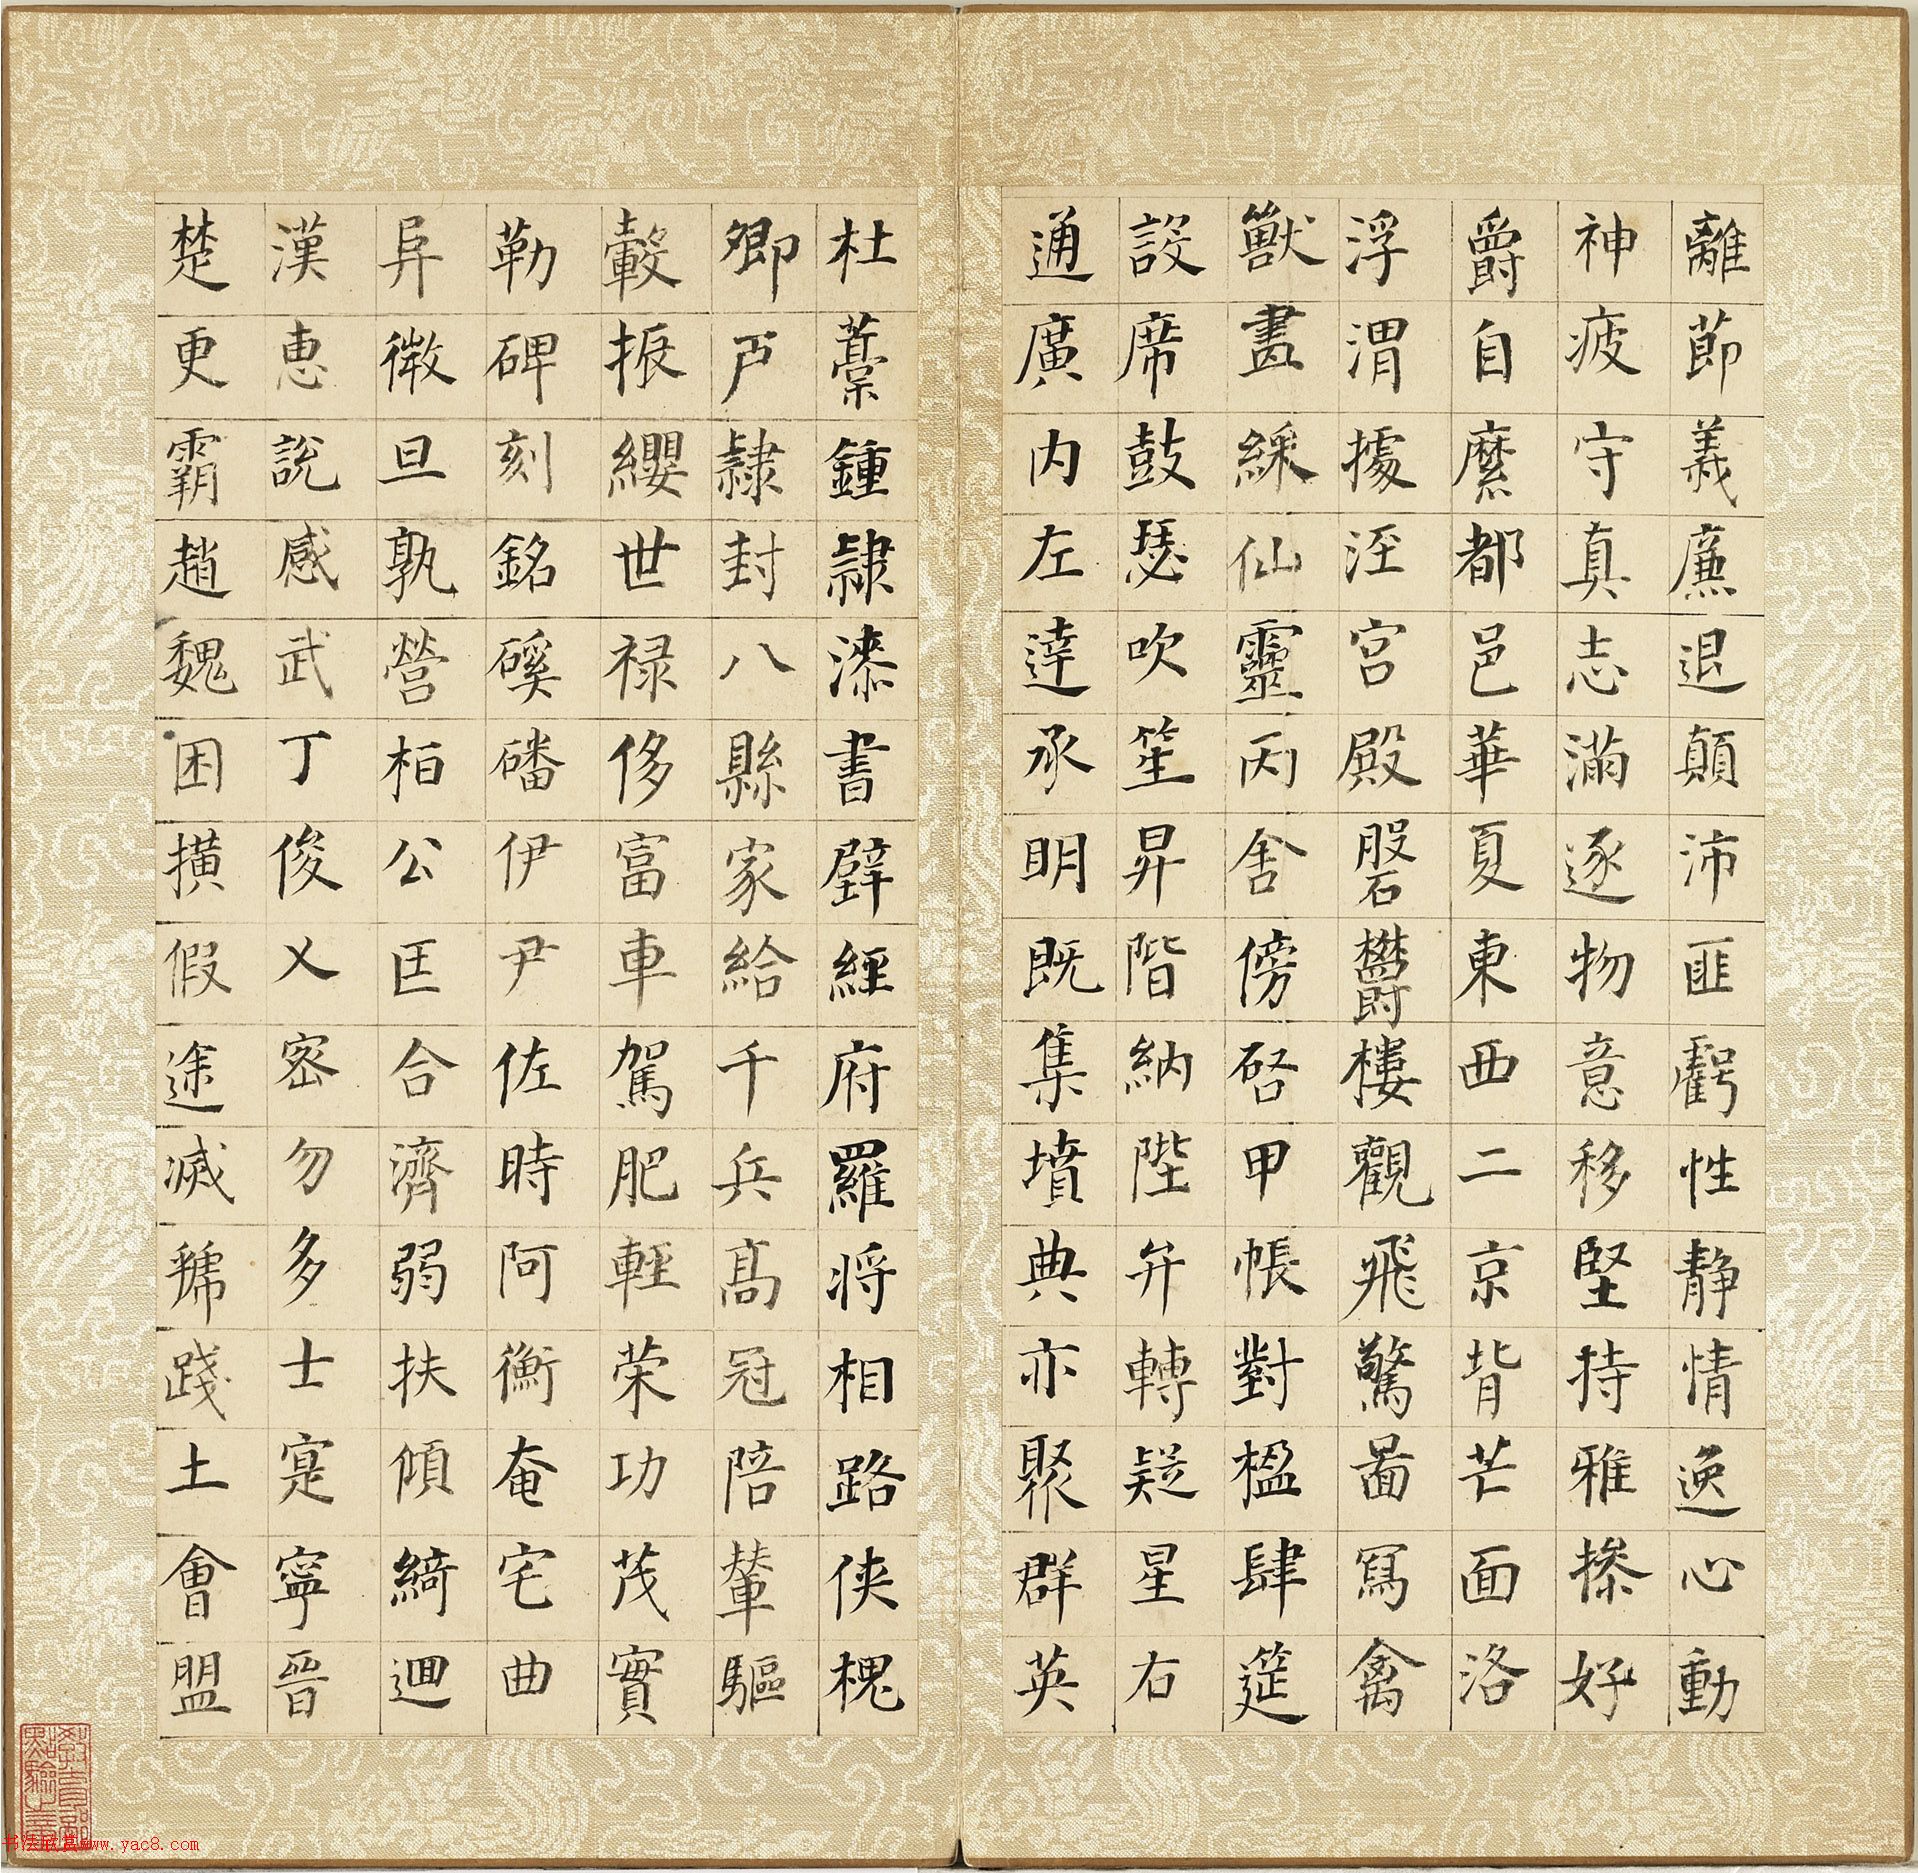 離節義廉退顛沛匪虧性静情逸心動
神疲守真志滿逐物意移堅持雅操好
爵自縻都邑華夏東西二京背芒面洛
浮渭據涇宮殿磐鬱樓觀飛驚啚寫禽
獸畫綵仙靈丙舍傍啓甲帳對楹肆筵
設席鼓瑟吹笙昇階納陛弁轉疑星右
通廣内左達承明既集墳典亦聚群英
杜藁鍾隸漆書壁經府羅将相路俠槐
卿户隸封八縣家給千兵髙冠陪輦驅
轂振纓世禄侈富車駕肥輕荣功茂實
勒碑刻銘磻磎伊尹佐時阿衡奄宅曲
阜微旦孰營桓公匡合濟弱扶傾綺迴
漢惠說感武丁俊乂密勿多士寔寧晉
楚更霸趙魏困橫假途滅虢踐土會盟
书法欣赏www.yac8.com